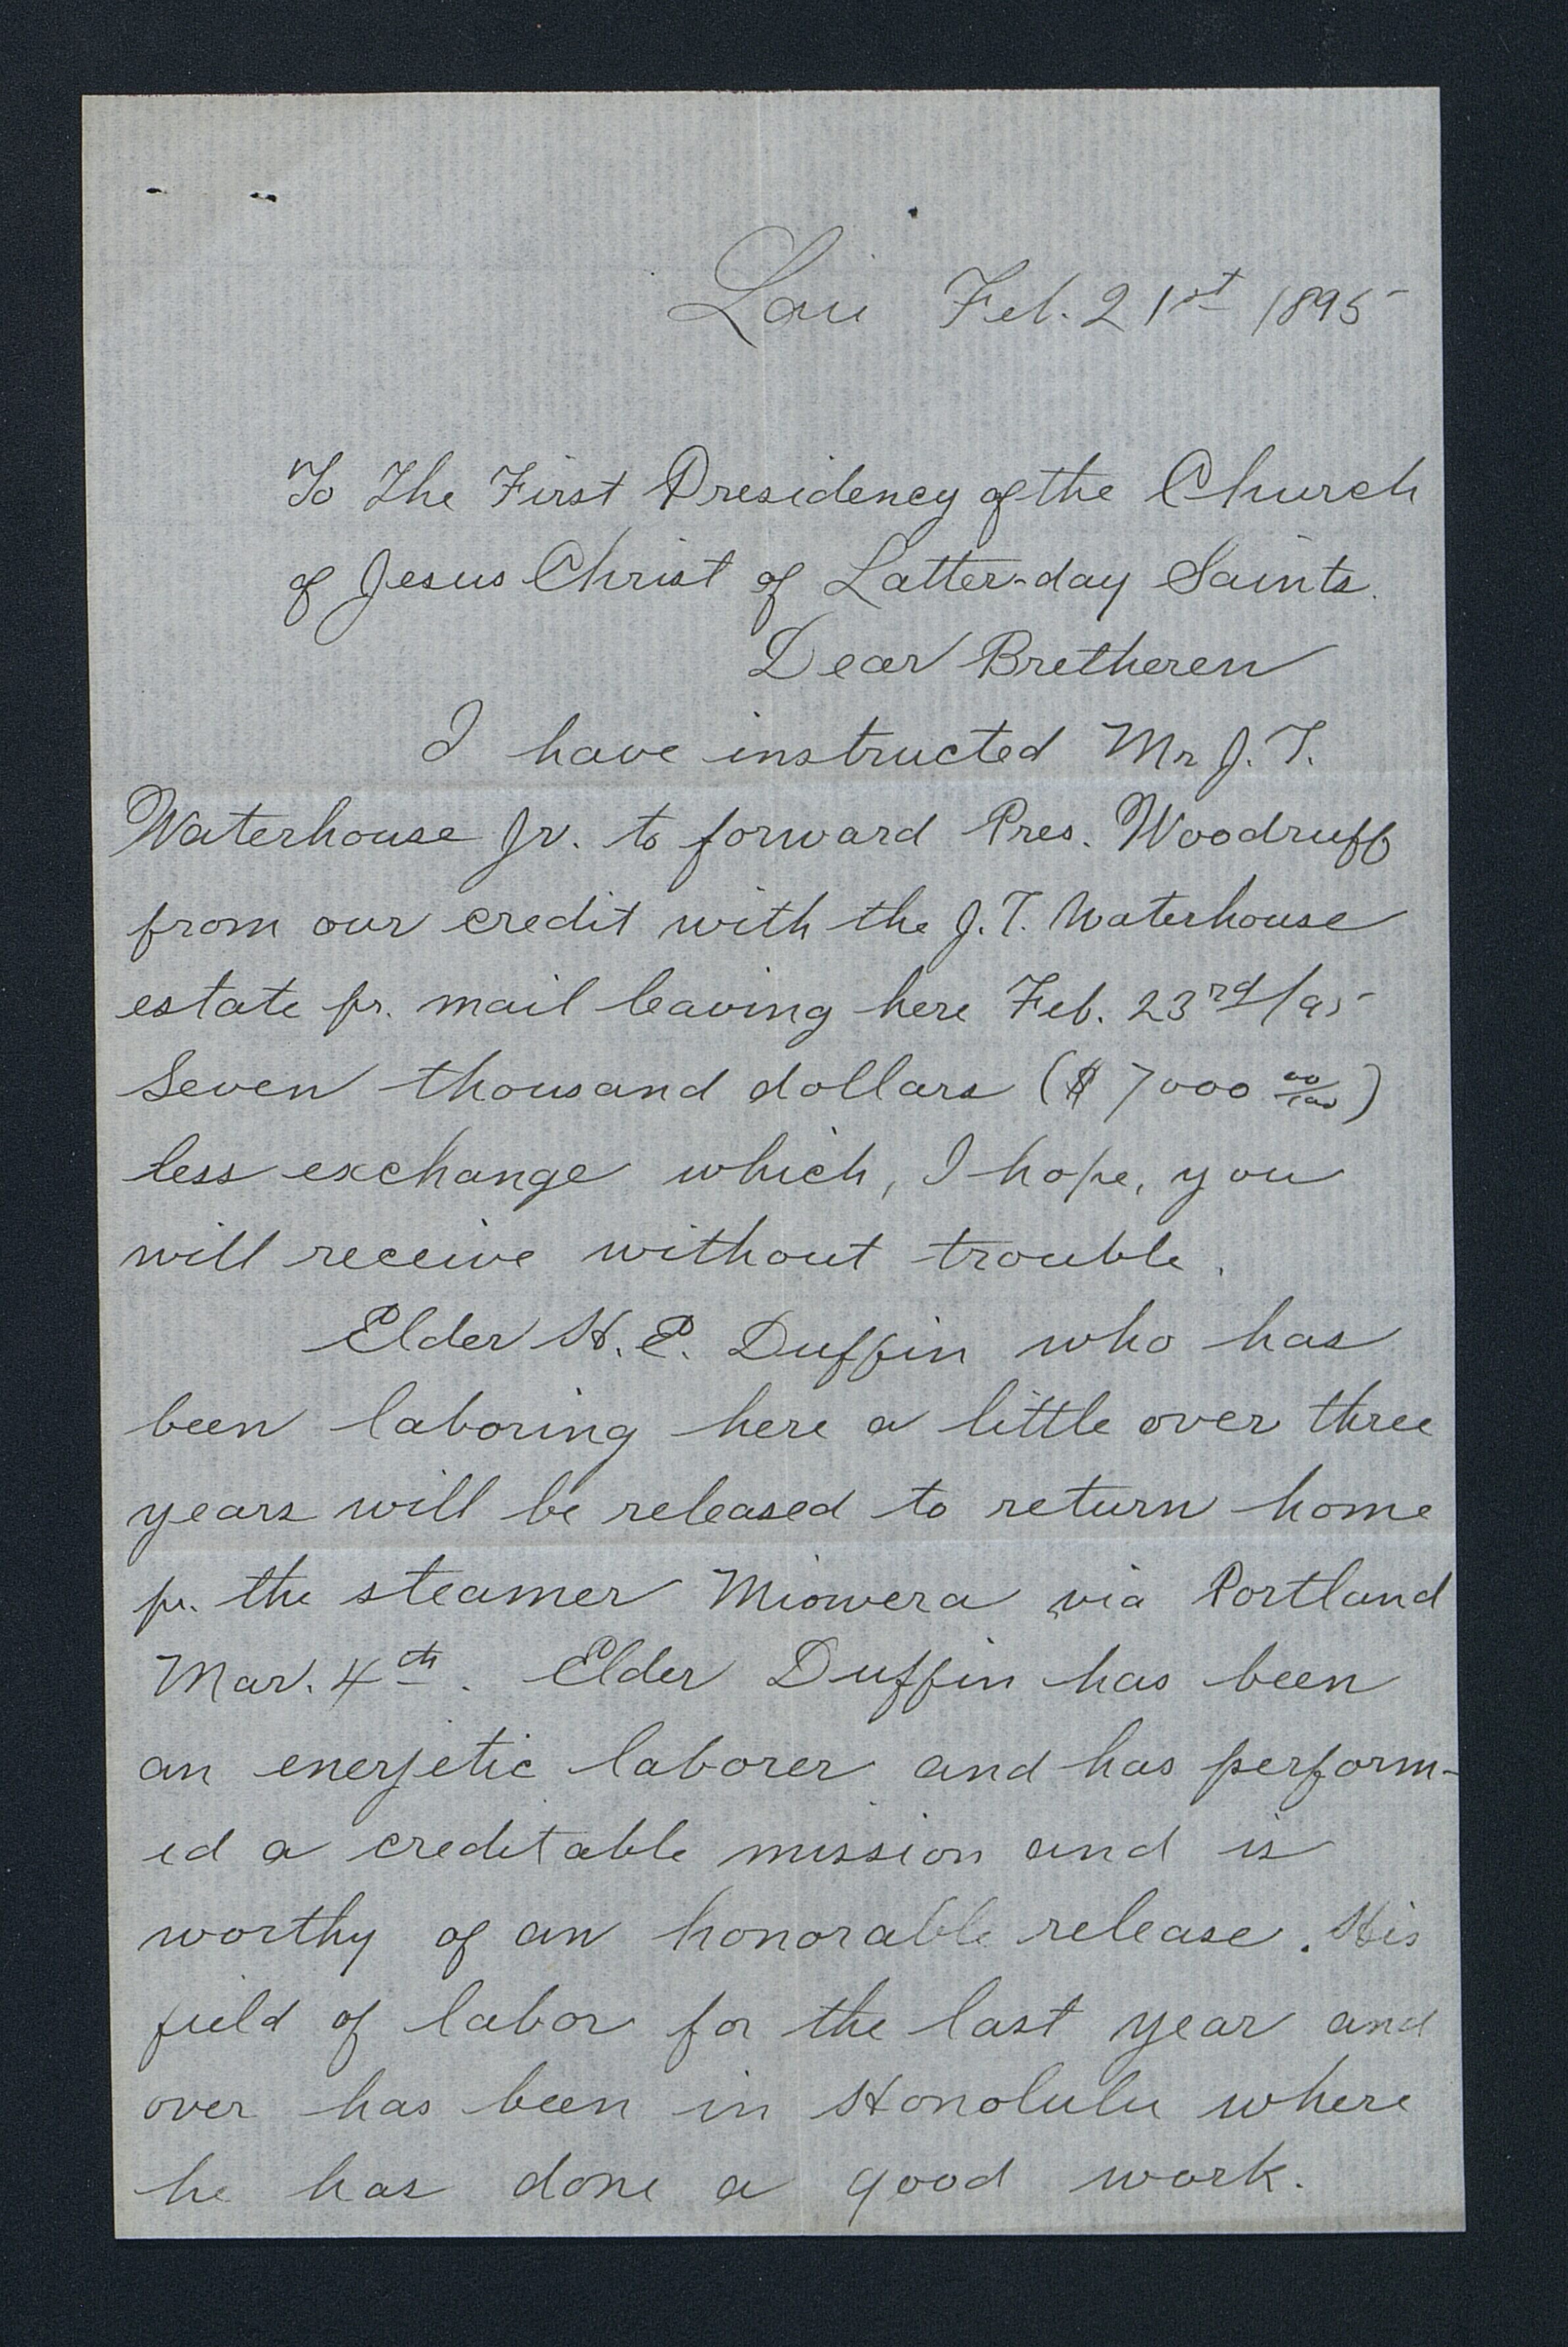 Laie Feb. 21st 1895
To The First Presidency of the Church
of Jesus Christ of Latter-day Saints.
Dear Bretheren
I have instructed Mr J. T.
Waterhouse Jr. to forward Pres. Woodruff
from our credit with the J. T. Waterhouse
estate pr. mail leaving here Feb. 23rd/95
Seven thousand dollars ($7000 00/100)
less exchange which, I hope, you
will receive without trouble.
Elder H. E. Duffin who has
been laboring here a little over three
years will be released to return home
pr. the steamer Miowera via Portland
Mar. 4th. Elder Duffin has been
an enerjetic laborer and has perform-
ed a creditable mission and is
worthy of an honorable release. His
field of labor for the last year and
over has been in Honolulu where
he has done a good work.